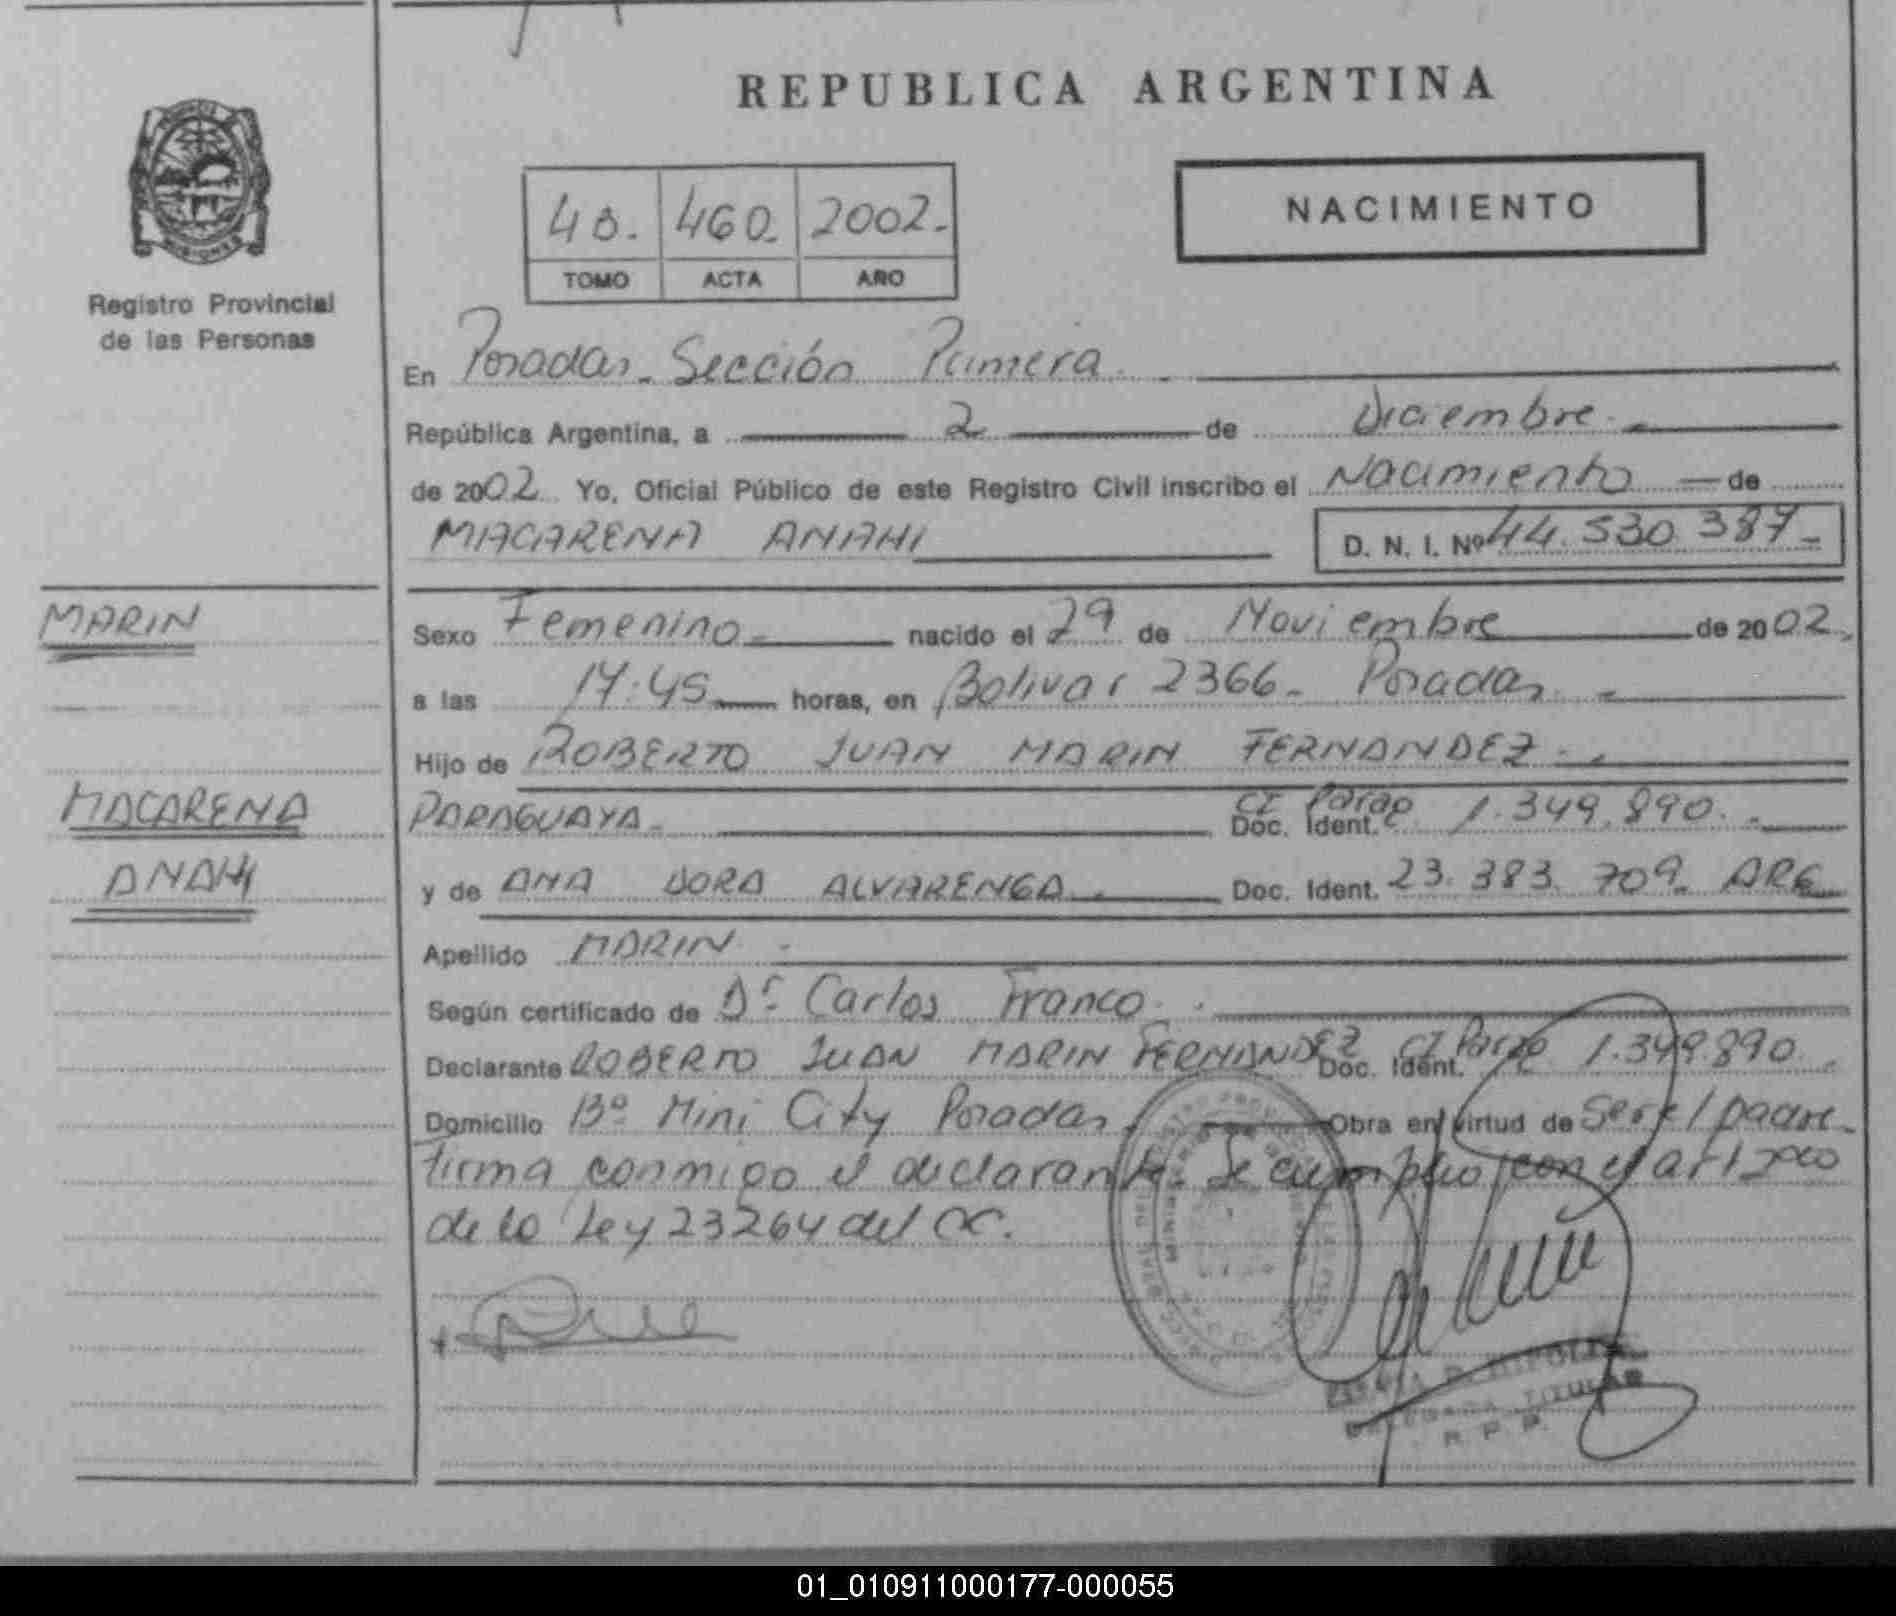 REPUBLICA ARGENTINA
MISIONES
Registro Provincial
de las Personas
40. 460. 2002.
TOMO ACTA AÑO
NACIMIENTO
En Posadas - Sección Primera
República Argentina, a 2 de Diciembre
de 2002 Yo, Oficial Público de este Registro Civil inscribo el Nacimiento de
MACARENA ANAHI D. N. I. Nº 44.530.387
MARIN
Sexo Femenino nacido el 29 de Noviembre de 2002
a las 17:45 horas, en Bolivar 2366 - Posadas
Hijo de ROBERTO JUAN MARIN FERNANDEZ
MACARENA
PARAGUAYA CI Parag Doc. Ident. 1.349.890
ANAHI
y de ANA DORA ALVARENGA Doc. Ident. 23.383.709 ARG
Apellido MARIN
Según certificado de Dr Carlos Franco
Declarante ROBERTO JUAN MARIN FERNANDEZ CI Parag Doc. Ident. 1.349.890
Domicilio Bº Mini City Posadas Obra en virtud de Ser el padre
firma conmigo el declarante. Se cumplio con el art
de la Ley 23264 del CC.
TITULAR
R P P
01_010911000177-000055